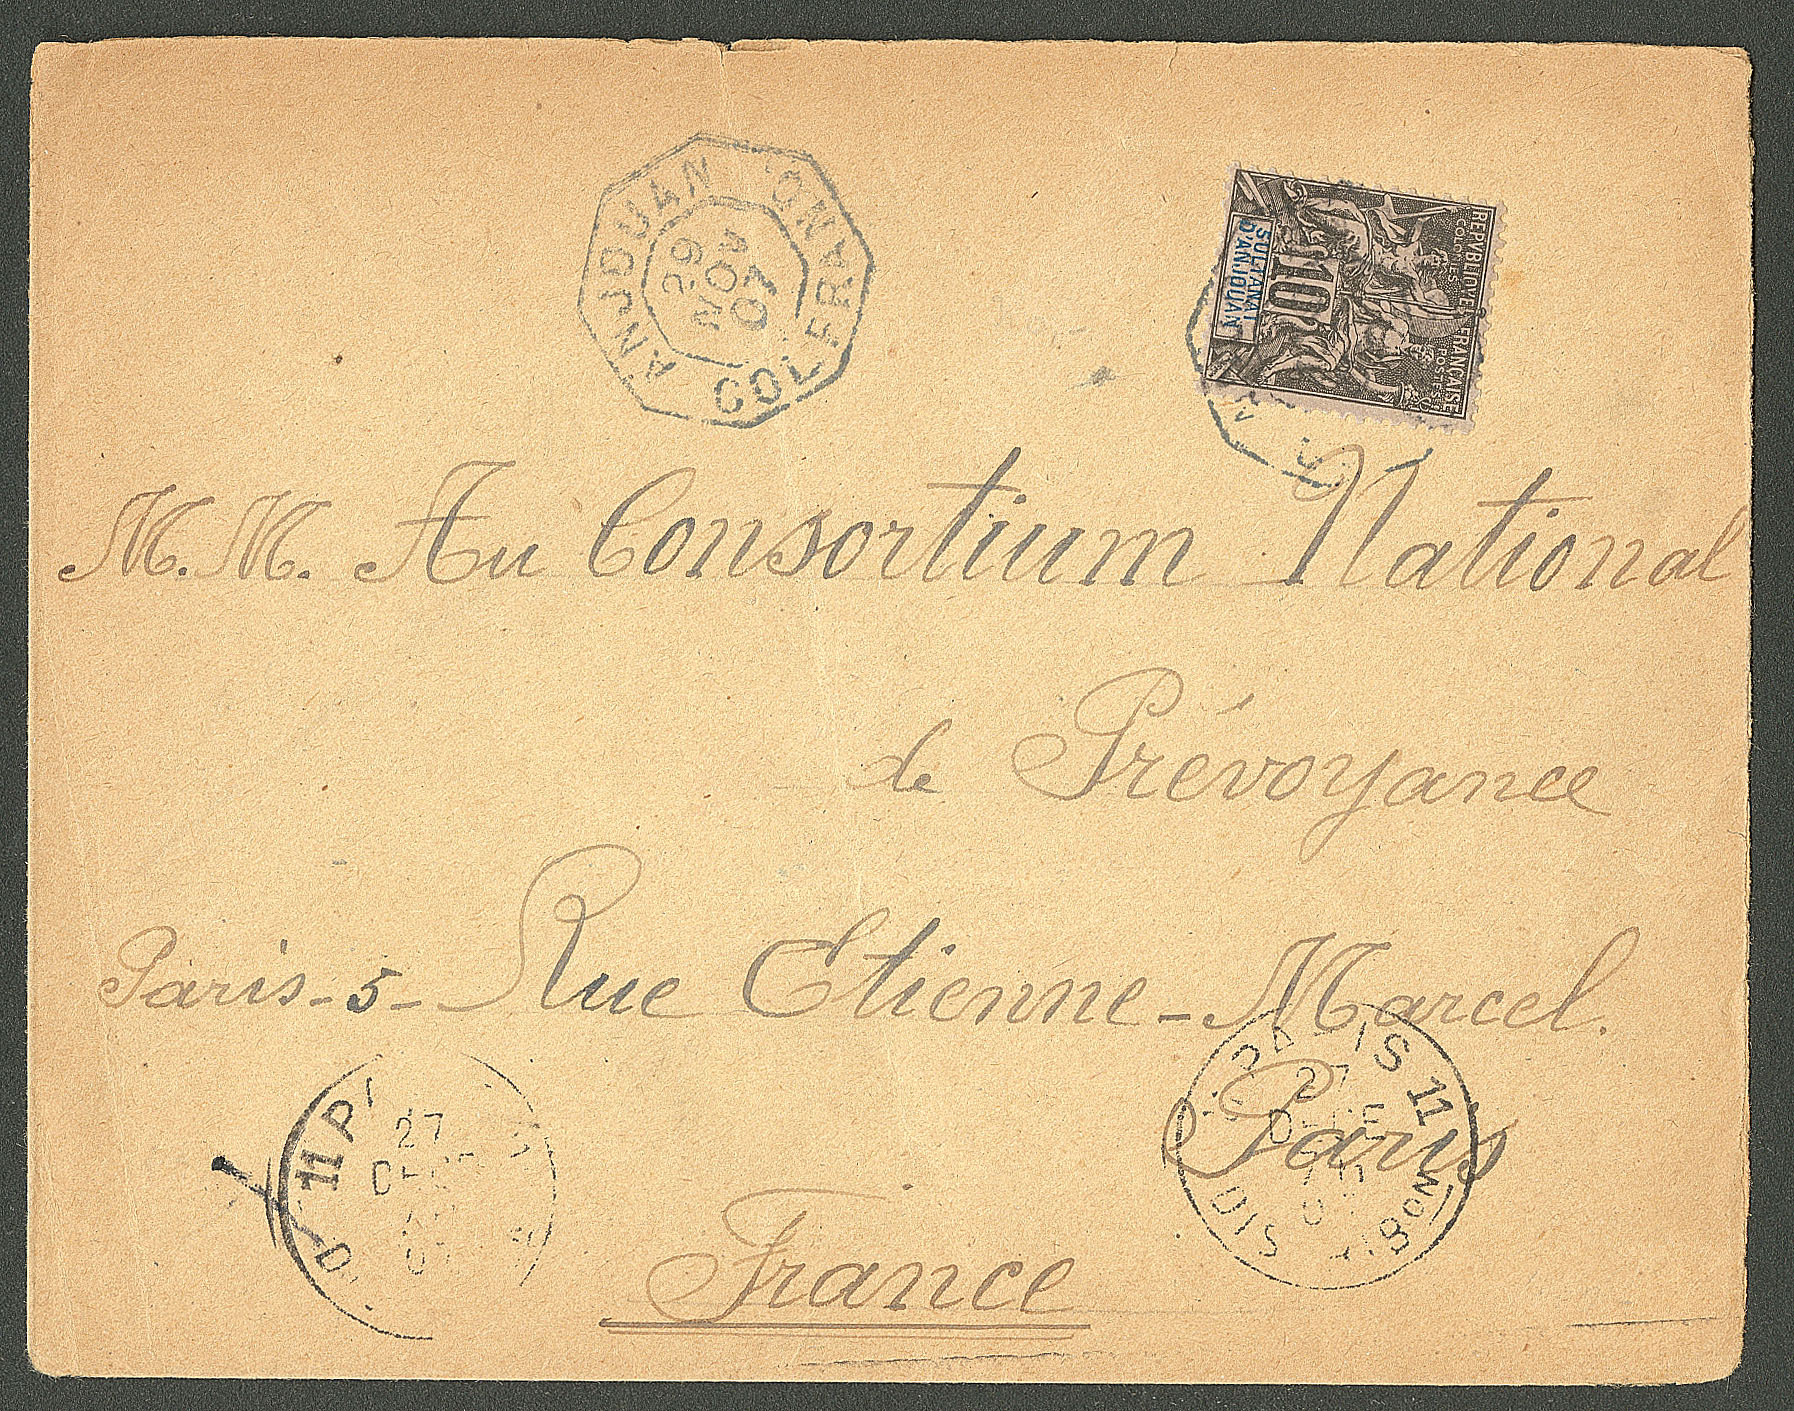 ANJOUAN COL. FRA
29
NOV
07
REPVBLIQVE FRANÇAISE
COLONIES POSTES
10
SULTANAT
D'ANJOUAN
M.M. Au Consortium National
de Prévoyance
Paris-5-Rue Etienne-Marcel.
Paris
France
11
27
07
PARIS 11
27
DECE